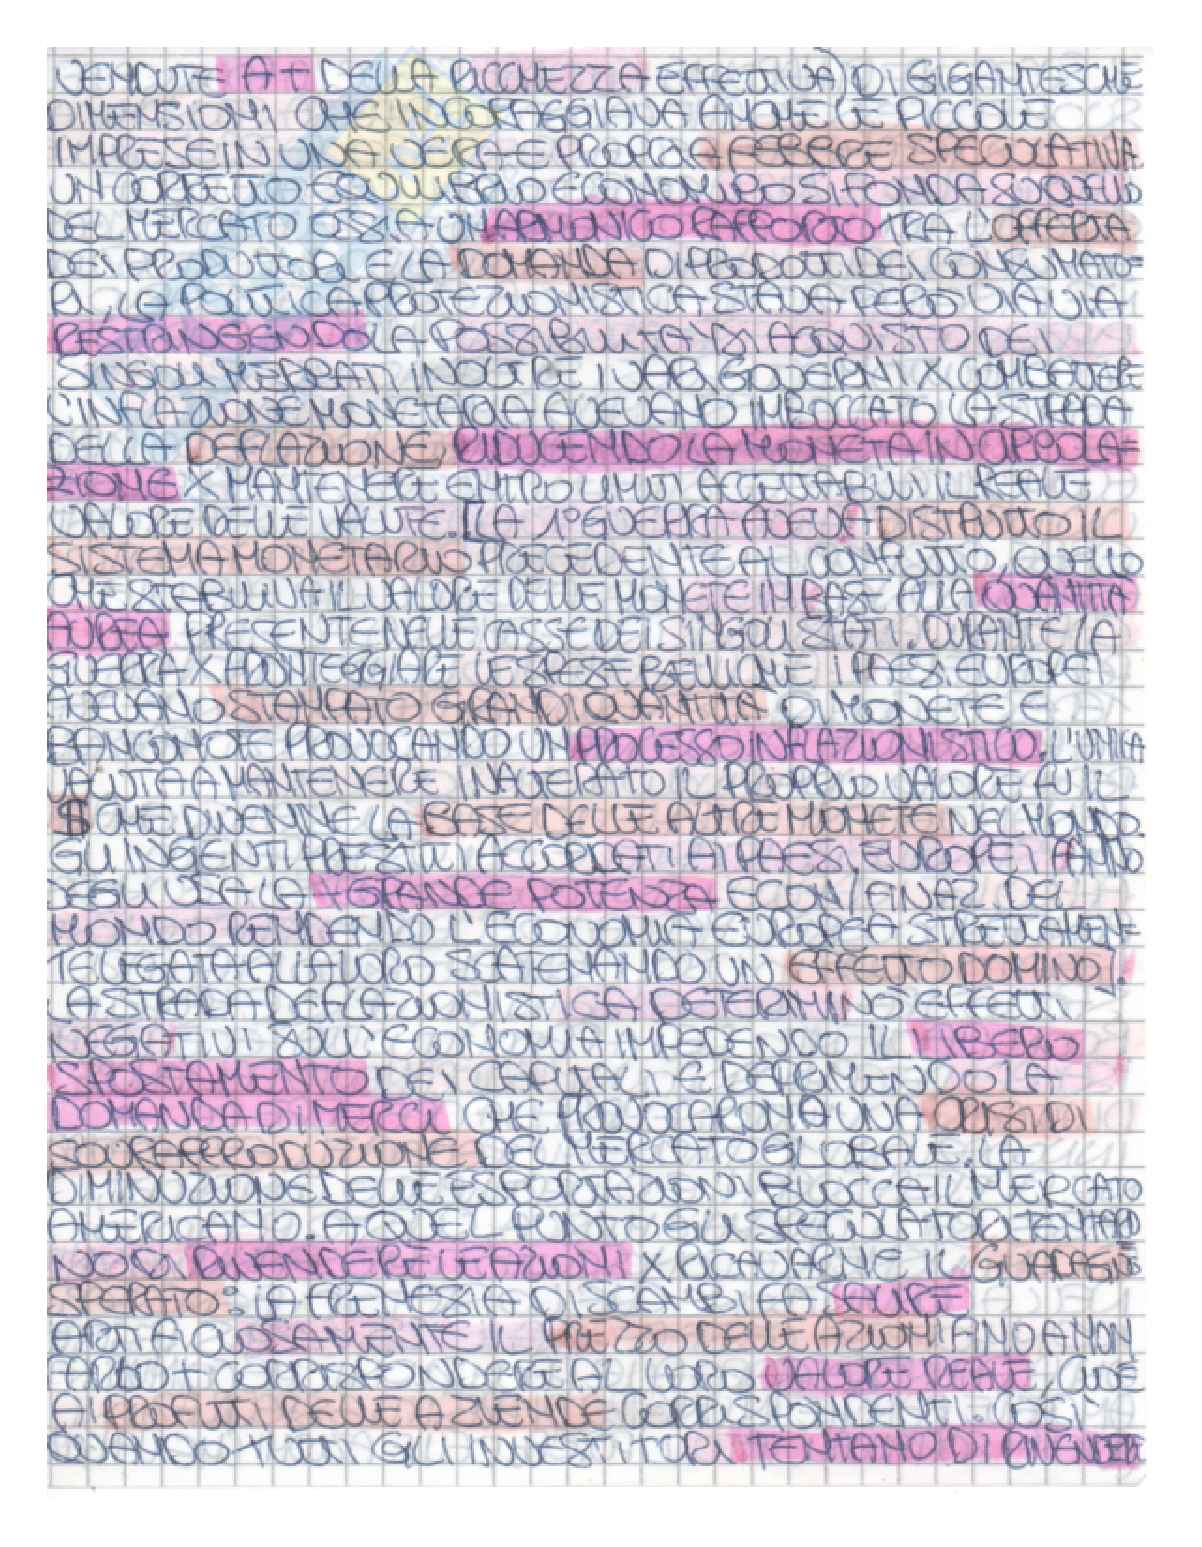 VENDUTE A + DELLA RICCHEZZA EFFETTIVA) DI GIGANTESCHE
DIMENSIONI CHE INCORAGGIAVA ANCHE LE PICCOLE
IMPRESE IN UNA VERA E PROPRIA FEBBRE SPECULATIVA
UN CORRETTO EQUILIBRIO ECONOMICO SI FONDA SU QUELLO
DEL MERCATO OSSIA UN ARMONICO RAPPORTO TRA L'OFFERTA
DEI PRODUTTORI E LA DOMANDA DI PRODOTTI DEI CONSUMATO=
RI, LA POLITICA PROTEZIONISTICA STAVA PERÒ VIA VIA
RESTRINGENDO LA POSSIBILITÀ DI ACQUISTO DEI
SINGOLI MERCATI INOLTRE I VARI GOVERNI X COMBATTERE
L'INFLAZIONE MONETARIA AVEVANO IMBOCCATO LA STRADA
DELLA DEFLAZIONE, RIDUCENDO LA MONETA IN CIRCOLA=
ZIONE X MANTENERE ENTRO LIMITI ACCETTABILI IL REALE
VALORE DELLE VALUTE. [LA 1° GUERRA AVEVA DISTRUTTO IL
SISTEMA MONETARIO PRECEDENTE AL CONFLITTO, QUELLO
CHE STABILIVA IL VALORE DELLE MONETE IN BASE ALLA QUANTITÀ
AUREA PRESENTE NELLE CASSE DEI SINGOLI STATI. DURANTE LA
GUERRA X FRONTEGGIARE LE SPESE BELLICHE I PAESI EUROPEI
AVEVANO STAMPATO GRANDI QUANTITÀ DI MONETE E
BANCONOTE PROVOCANDO UN PROCESSO INFLAZIONISTICO. L'UNICA
VALUTA A MANTENERE INALTERATO IL PROPRIO VALORE FU IL
$ CHE DIVENNE LA BASE DELLE ALTRE MONETE NEL MONDO.
GLI INGENTI PRESTITI ACCORDATI AI PAESI EUROPEI FANNO
DEGLI USA LA + GRANDE POTENZA ECON/FINAZ. DEL
MONDO RENDENDO L'ECONOMIA EUROPEA STRETTAMEN=
TE LEGATA ALLA LORO SCATENANDO UN EFFETTO DOMINO].
LA STRADA DEFLAZIONISTICA DETERMINÒ EFFETTI
NEGATIVI SULL'ECONOMIA IMPEDENDO IL LIBERO
SPOSTAMENTO DEI CAPITALI E DEPRIMENDO LA
DOMANDA DI MERCI, CHE PROVOCARONO UNA CRISI DI
SOVRAPPRODUZIONE DEL MERCATO GLOBALE. LA
DIMINUZIONE DELLE ESPORTAZIONI BLOCCA IL MERCATO
AMERICANO. A QUEL PUNTO GLI SPECULATORI TENTARO
NO DI RIVENDERE LE AZIONI X RICAVARNE IL GUADAGNO
SPERATO: LA FRENESIA DI SCAMBI FA SALIRE
ARTIFICIOSAMENTE IL PREZZO DELLE AZIONI FINO A NON
FARLO + CORRISPONDERE AL LORO VALORE REALE, CIOÈ
AI PROFITTI DELLE AZIENDE CORRISPONDENTI. COSÌ
QUANDO TUTTI GLI INVESTITORI TENTANO DI RIVENDERE